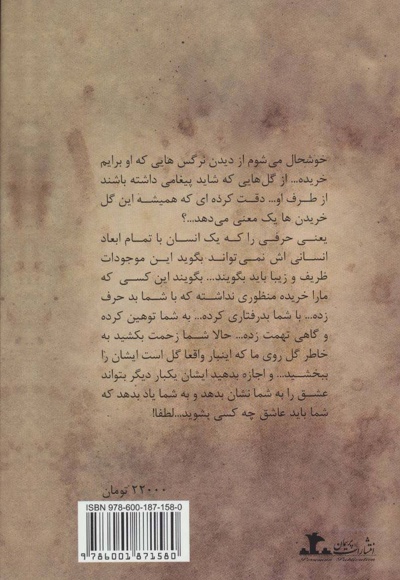 خوشحال می‌شوم از دیدن نرگس هایی که او برایم
خریده... از گل‌هایی که شاید پیغامی داشته باشند
از طرف او... دقت کرده ای که همیشه این گل
خریدن ها یک معنی می‌دهد...؟
یعنی حرفی را که یک انسان با تمام ابعاد
انسانی اش نمی‌تواند بگوید این موجودات
ظریف و زیبا باید بگویند... بگویند این کسی که
مارا خریده منظوری نداشته که با شما بد حرف
زده... با شما بدرفتاری کرده... به شما توهین کرده
و گاهی تهمت زده... حالا شما زحمت بکشید به
خاطر گل روی ما که اینبار واقعا گل است ایشان را
ببخشید... و اجازه بدهید ایشان یکبار دیگر بتواند
عشق را به شما نشان بدهد و به شما یاد بدهد که
شما باید عاشق چه کسی بشوید...لطفا!
۲۲۰۰۰ تومان
ISBN 978-600-187-158-0
9 786001 871580